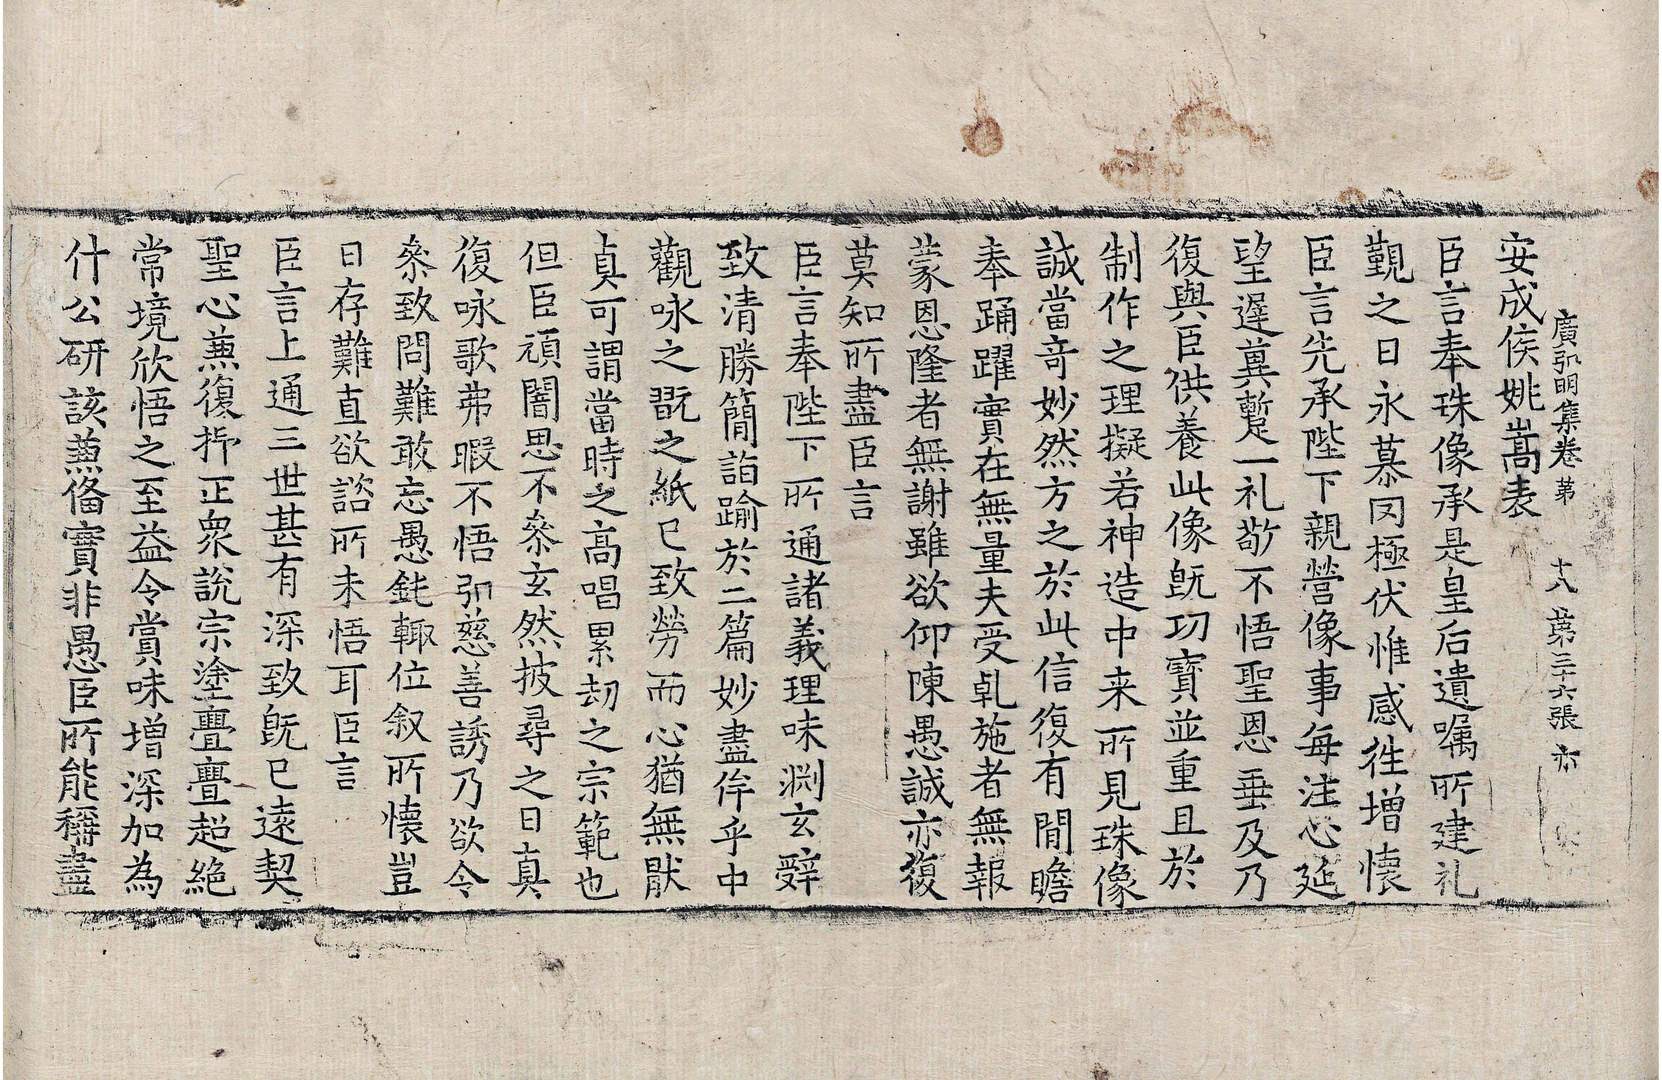 廣弘明集卷第 十八 第三十六張 亦
安成侯姚嵩表
臣言奉珠像承是皇后遺囑所建礼
覲之日永慕罔極伏惟感徃增懷
臣言先承陛下親營像事每注心延
望遲冀暫一礼敬不悟聖恩垂及乃
復與臣供養此像既功寶並重且於
制作之理擬若神造中来所見珠像
誠當奇妙然方之於此信復有間瞻
奉踊躍實在無量夫受乹施者無報
蒙恩隆者無謝雖欲仰陳愚誠亦復
莫知所盡臣言
臣言奉陛下所通諸義理味渊玄辝
致清勝簡詣踰於二篇妙盡侔乎中
觀咏之翫之紙已致勞而心猶無猒
真可謂當時之高唱累劫之宗範也
但臣頑闇思不叅玄然披尋之日真
復咏歌弗暇不悟弘慈善誘乃欲令
叅致問難敢忘愚鈍輙位叙所懷豈
曰存難直欲諮所未悟耳臣言
臣言上通三世甚有深致既已遠契
聖心兼復抃正衆說宗塗亹亹超絶
常境欣悟之至益令賞味增深加為
什公研該兼俻實非愚臣所能稱盡